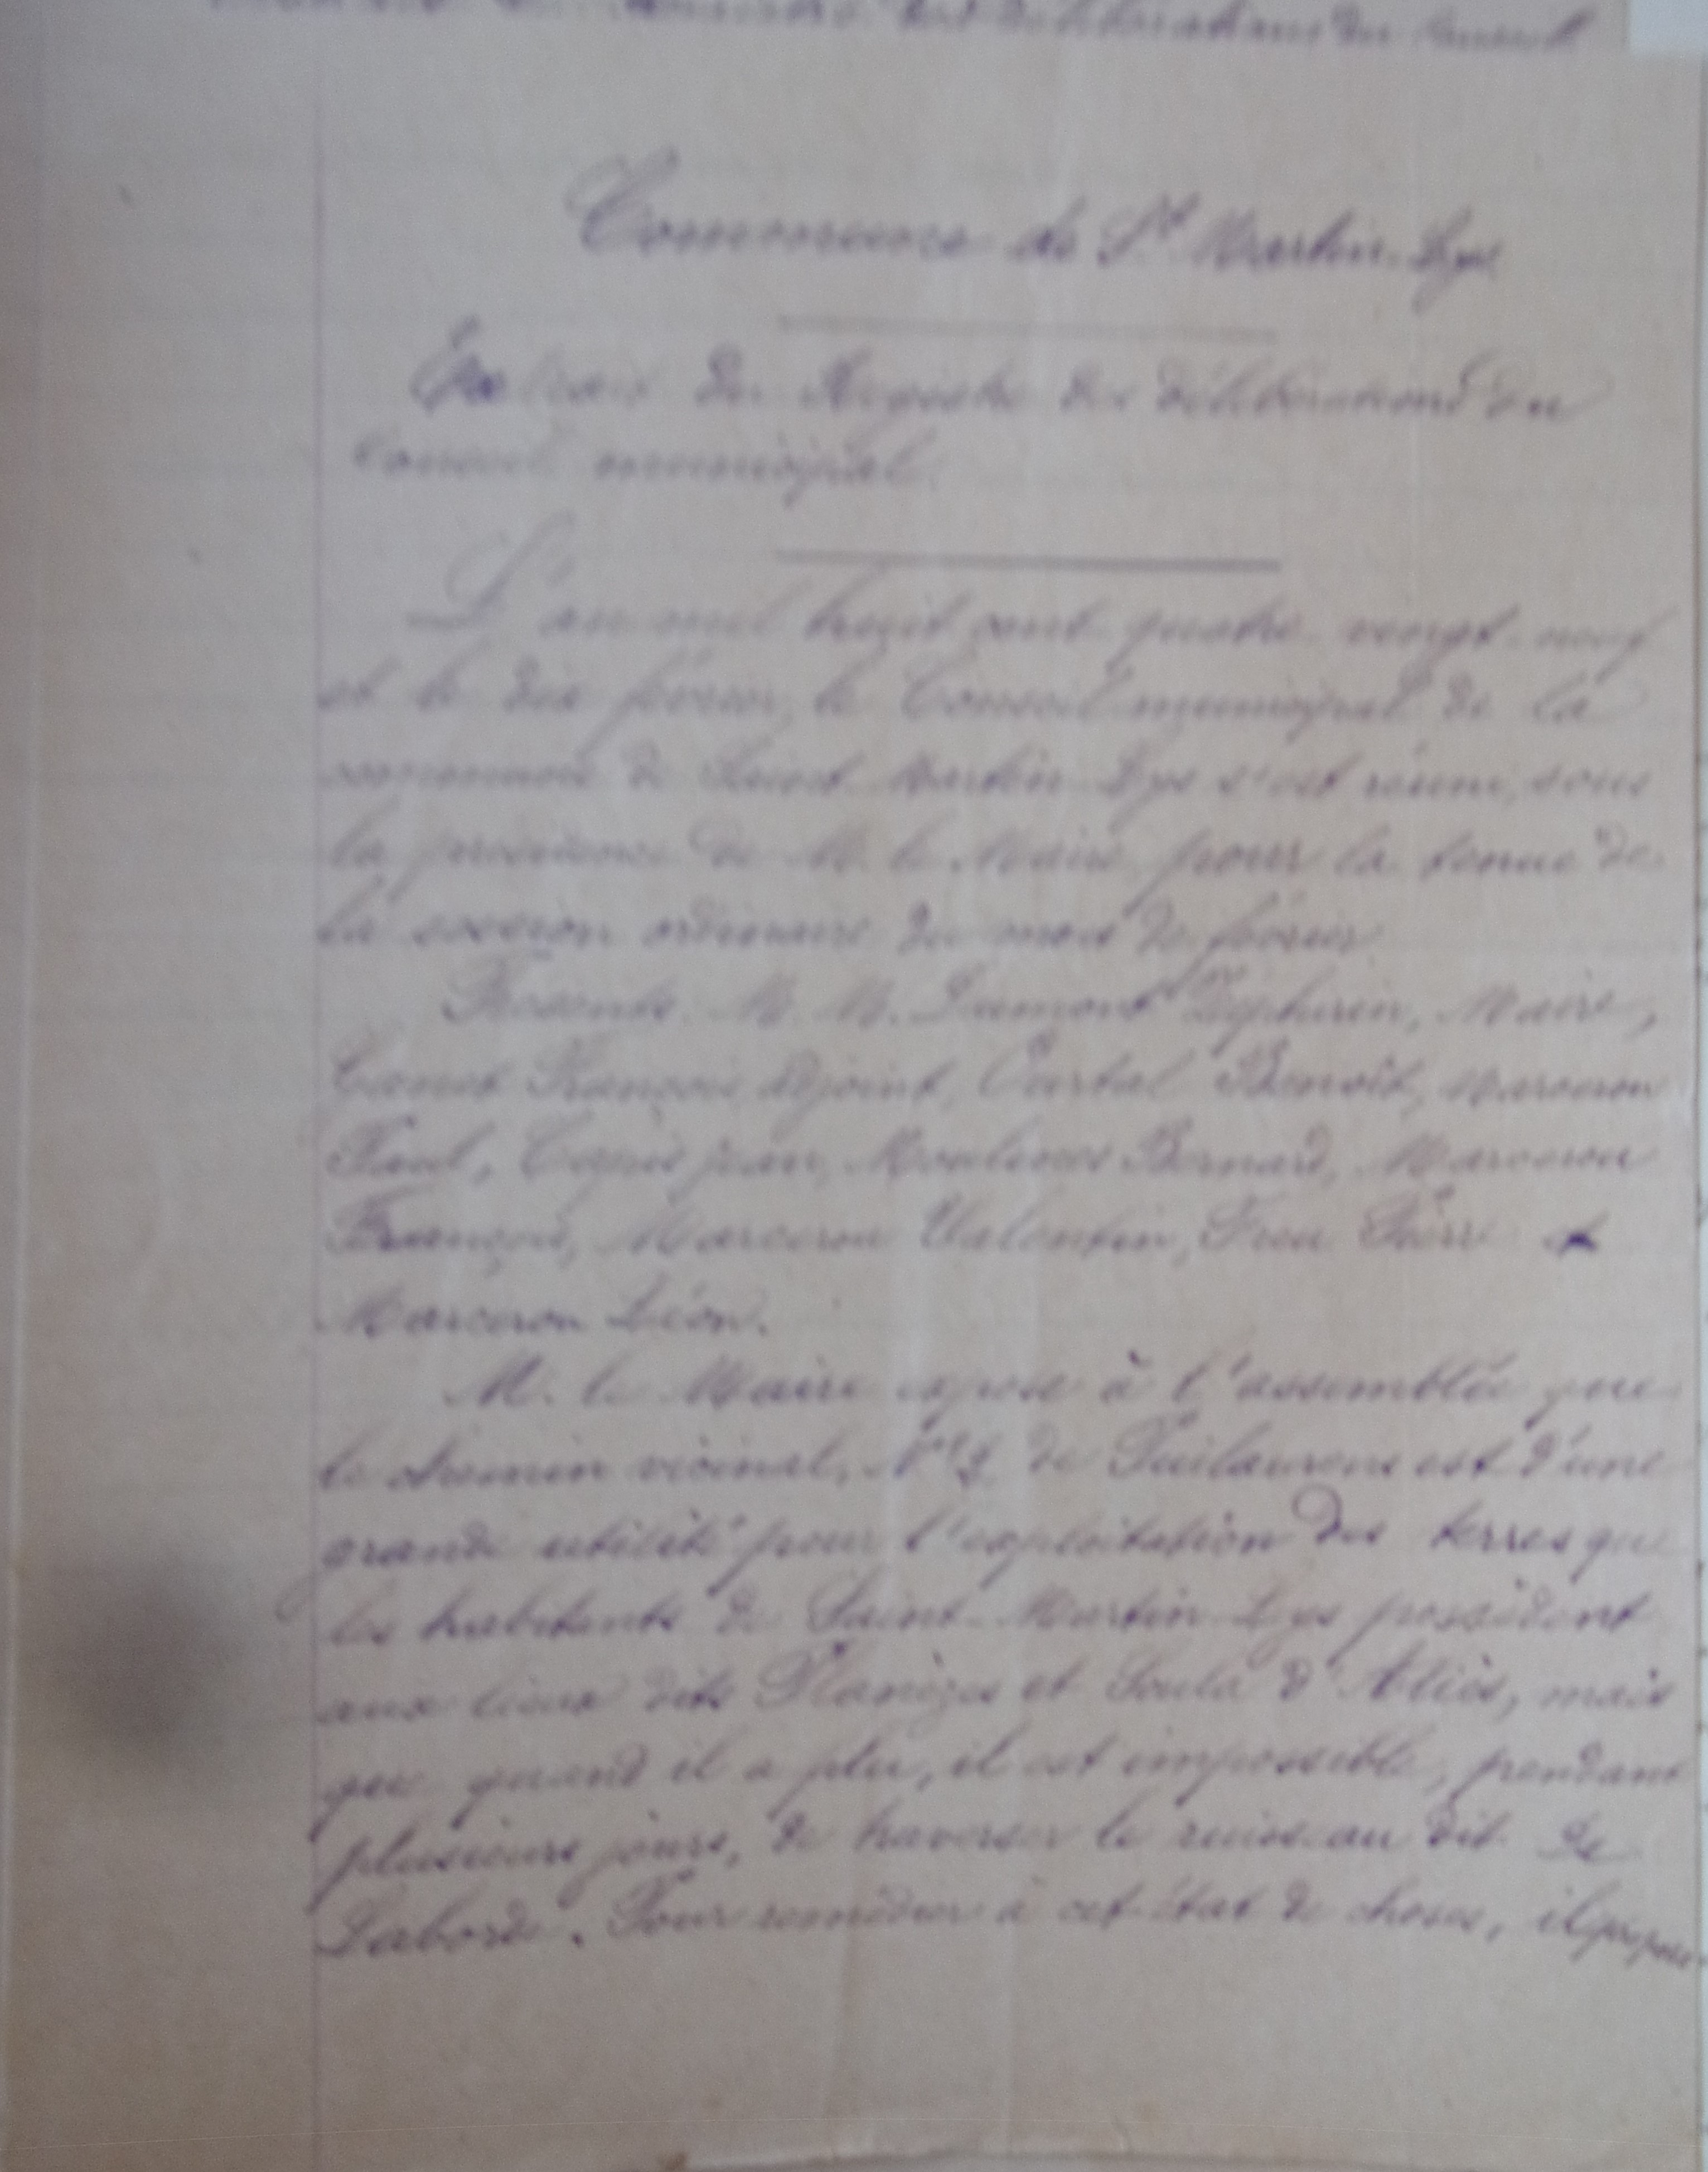 des délibérations du Conseil
Commune de St Martin-Lys
Extrait du Registre des délibérations du
Conseil municipal.
L'an mil huit cent quatre-vingt-neuf
et le dix février, le Conseil municipal de la
commune de Saint-Martin-Lys s'est réuni, sous
la présidence de M. le Maire, pour la tenue de
la session ordinaire du mois de février.
Présents. M. M. Dumont Zéphirin, Maire,
Canet François adjoint, Benoît, Marceron
Paul, jean, Moulines Bernard, Marceron
François, Marceron Valentin, Pierre et
Marceron Léon.
M. le Maire expose à l'assemblée que
le chemin vicinal, de Puilaurens est d'une
grande utilité pour l'exploitation des terres que
les habitants de Saint-Martin-Lys possèdent
aux lieux dits Planèzes et Soula d'Aliès, mais
que quand il a plu, il est impossible, pendant
plusieurs jours, de traverser le ruisseau dit de
Laborde. Pour remédier à cet état de choses, il propose